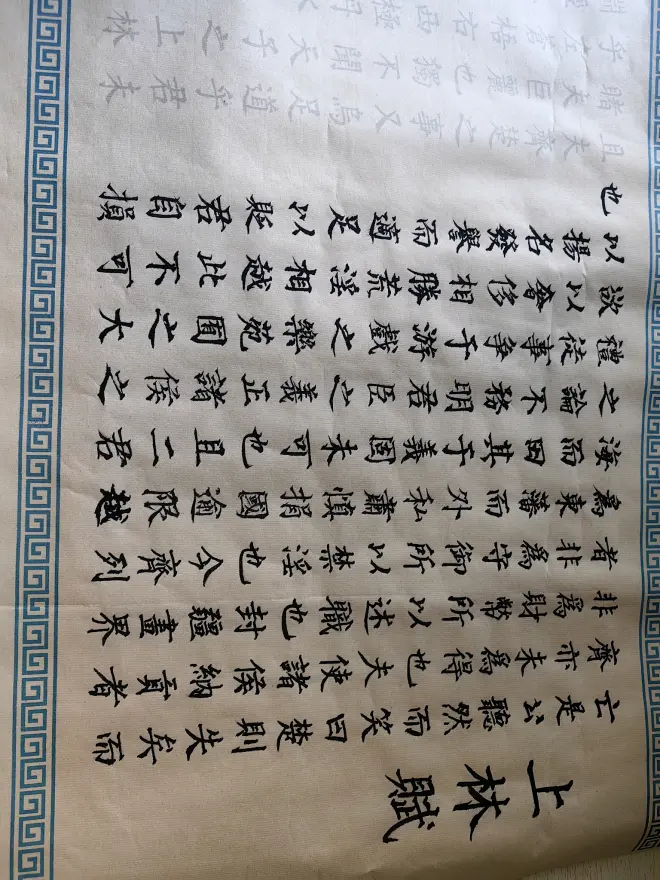 上林賦
亡是公聽然而笑曰楚則失矣而
齊亦未為得也夫使諸侯納貢者
非為財幣所以述職也封疆畫界
者非為守御所以禁淫也今齊列
為東藩而外私肅慎捐國逾限越
海而田其于義固未可也且二君
之論不務明君臣之義正諸侯之
禮徒事爭于游戲之樂苑囿之大
欲以奢侈相勝荒淫相越此不可
以揚名發譽而適足以貶君自損
也
且夫齊楚之事又烏足道乎君未
睹夫巨麗也獨不聞天子之上林
乎左蒼梧右西極丹